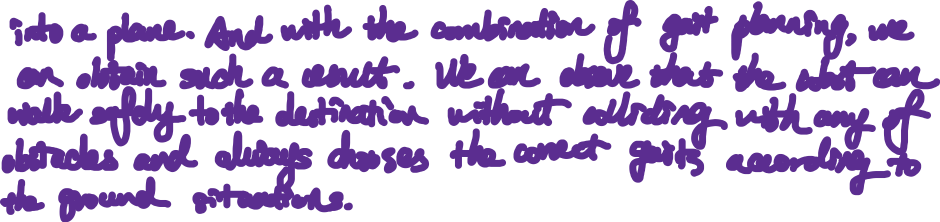 into a plane. And with the combination of gait planning, we
can obtain such a result. We can observe that the robot can
walk safely to the destination without colliding with any of
obstacles and always chooses the correct gaits according to
the ground situations.